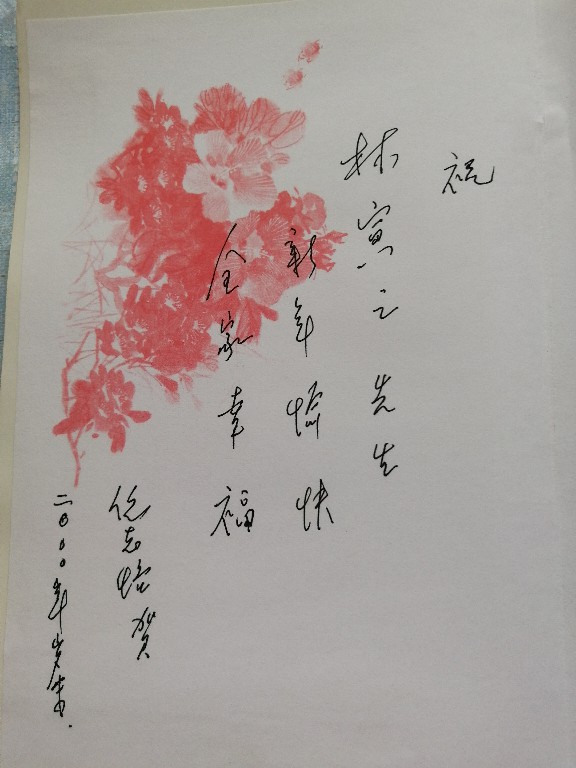 祝
林寅之先生
新年愉快
全家幸福
倪志愉贺
二〇〇〇年岁末.